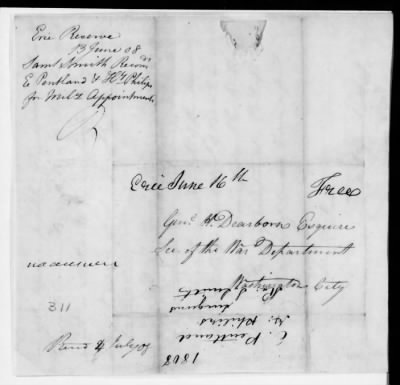 Erie Reserve
13 June 08
Saml Smith Recomds
E Pentland & Hy Philips
for Milty Appointments.
Erie June 16th Free
Genl. H. Dearborn Esquire
Sec. of the War Department
Washington City
no answer
311
Recd 4 July 08
1808
E. Pentland
H. Philips